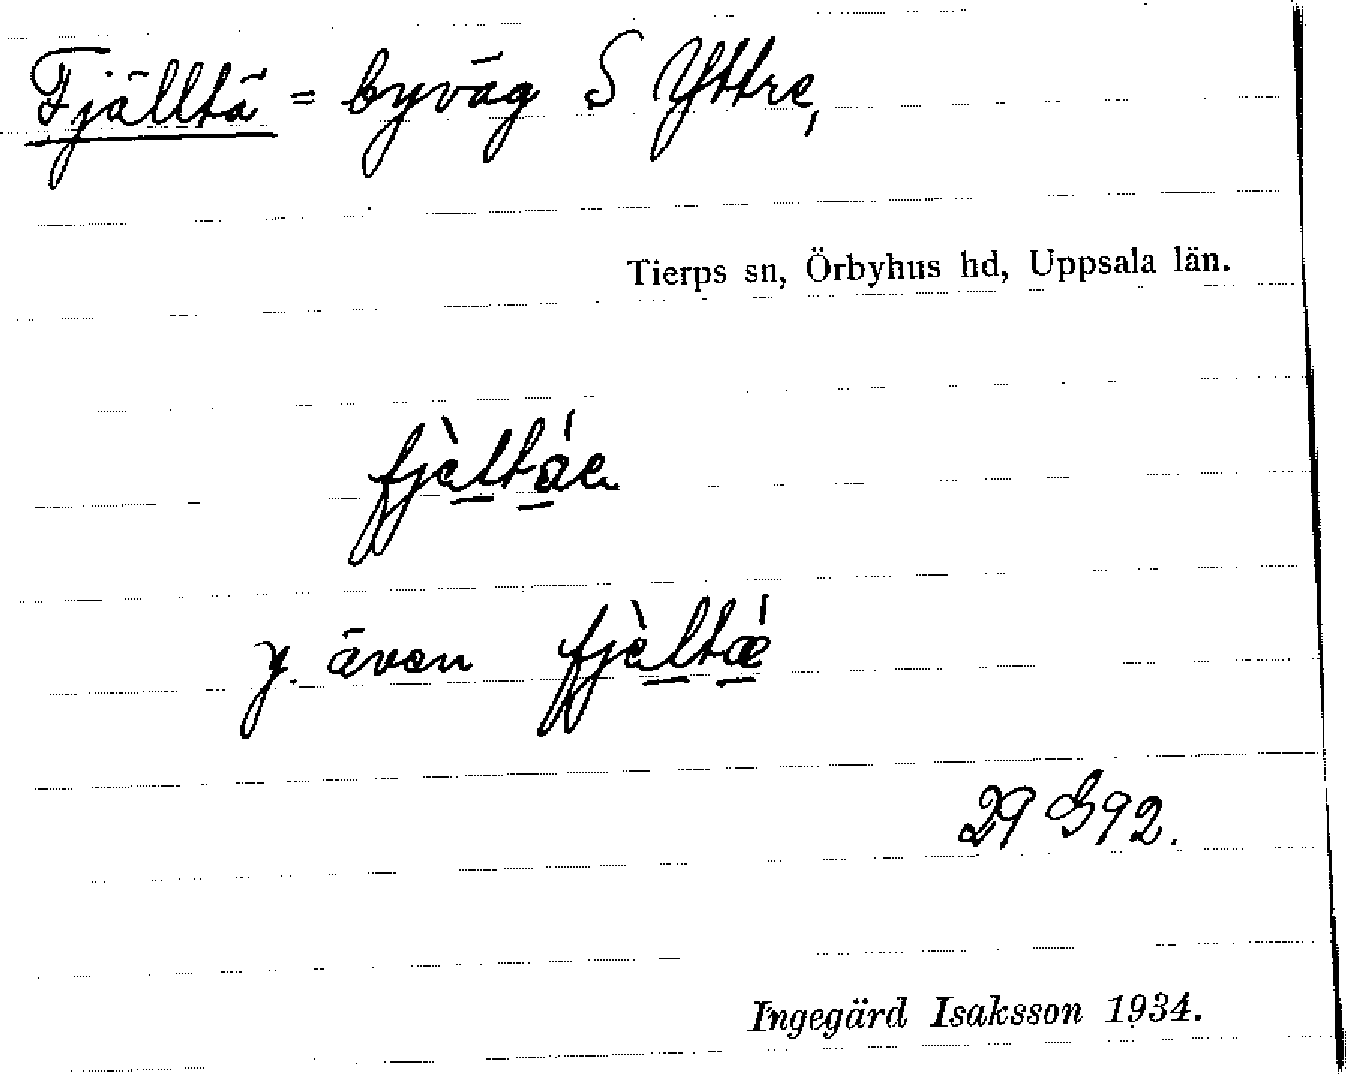 Fjälltä = byväg S Yttre,
Tierps sn, Örbyhus hd, Uppsala län.
y. även
29 G 92.
Ingegärd Isaksson 1934.